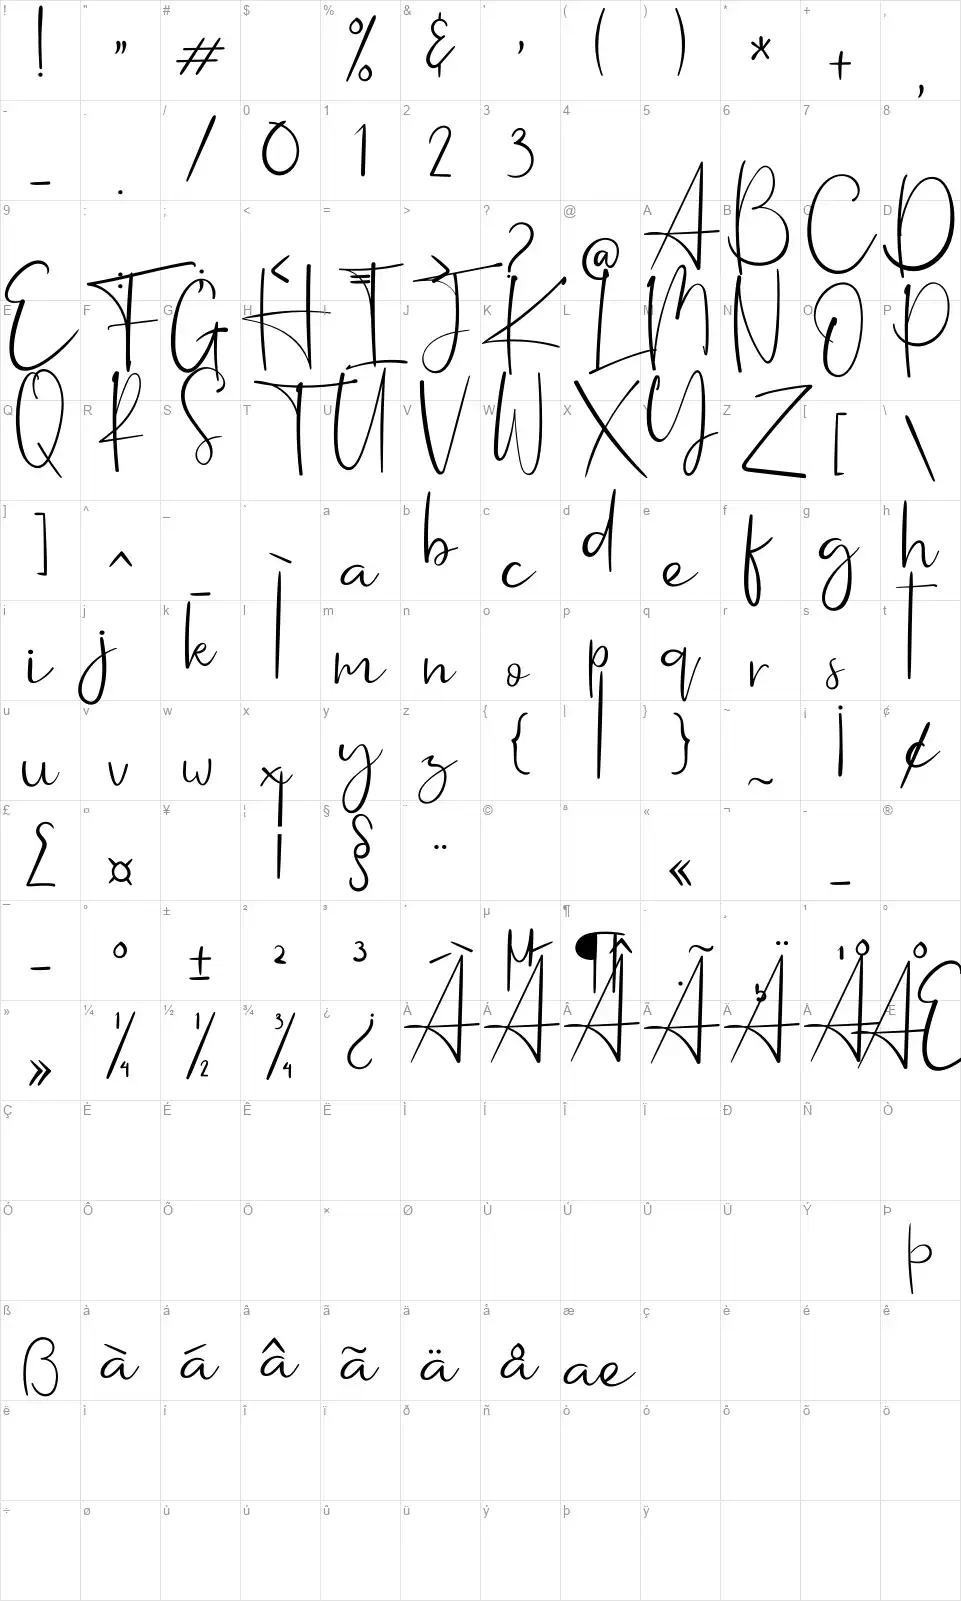 ! " # $ % & ' ( ) * + ,
! " # % & ' ( ) * + ,
- . / 0 1 2 3 4 5 6 7 8
- . / 0 1 2 3
9 : ; < = > ? @ A B C D
: ; < = > ? @ A B C D
E F G H I J K L M N O P
E F G H I J K L M N O P
Q R S T U V W X Y Z [ \
Q R S T U V W X Y Z [ \
] ^ _ ` a b c d e f g h
] ^ _ ` a b c d e f g h
i j k l m n o p q r s t
i j k l m n o p q r s t
u v w x y z { | } ~ ¡ ¢
u v w x y z { | } ~ ¡ ¢
£ ¤ ¥ ¦ § ¨ © ª « ¬ - ®
£ ¤ ¦ § ¨ « -
¯ ° ± ² ³ ´ µ ¶ · ¸ ¹ º
¯ ° ± ² ³ ´ µ ¶ · ¸ ¹ º
» ¼ ½ ¾ ¿ À Á Â Ã Ä Å Æ
» ¼ ½ ¾ ¿ À Á Â Ã Ä Å Æ
Ç È É Ê Ë Ì Í Î Ï Ð Ñ Ò
Ó Ô Õ Ö × Ø Ù Ú Û Ü Ý Þ
Þ
ß à á â ã ä å æ ç è é ê
ß à á â ã ä å æ
ë ì í î ï ð ñ ò ó ô õ ö
÷ ø ù ú û ü ý þ ÿ